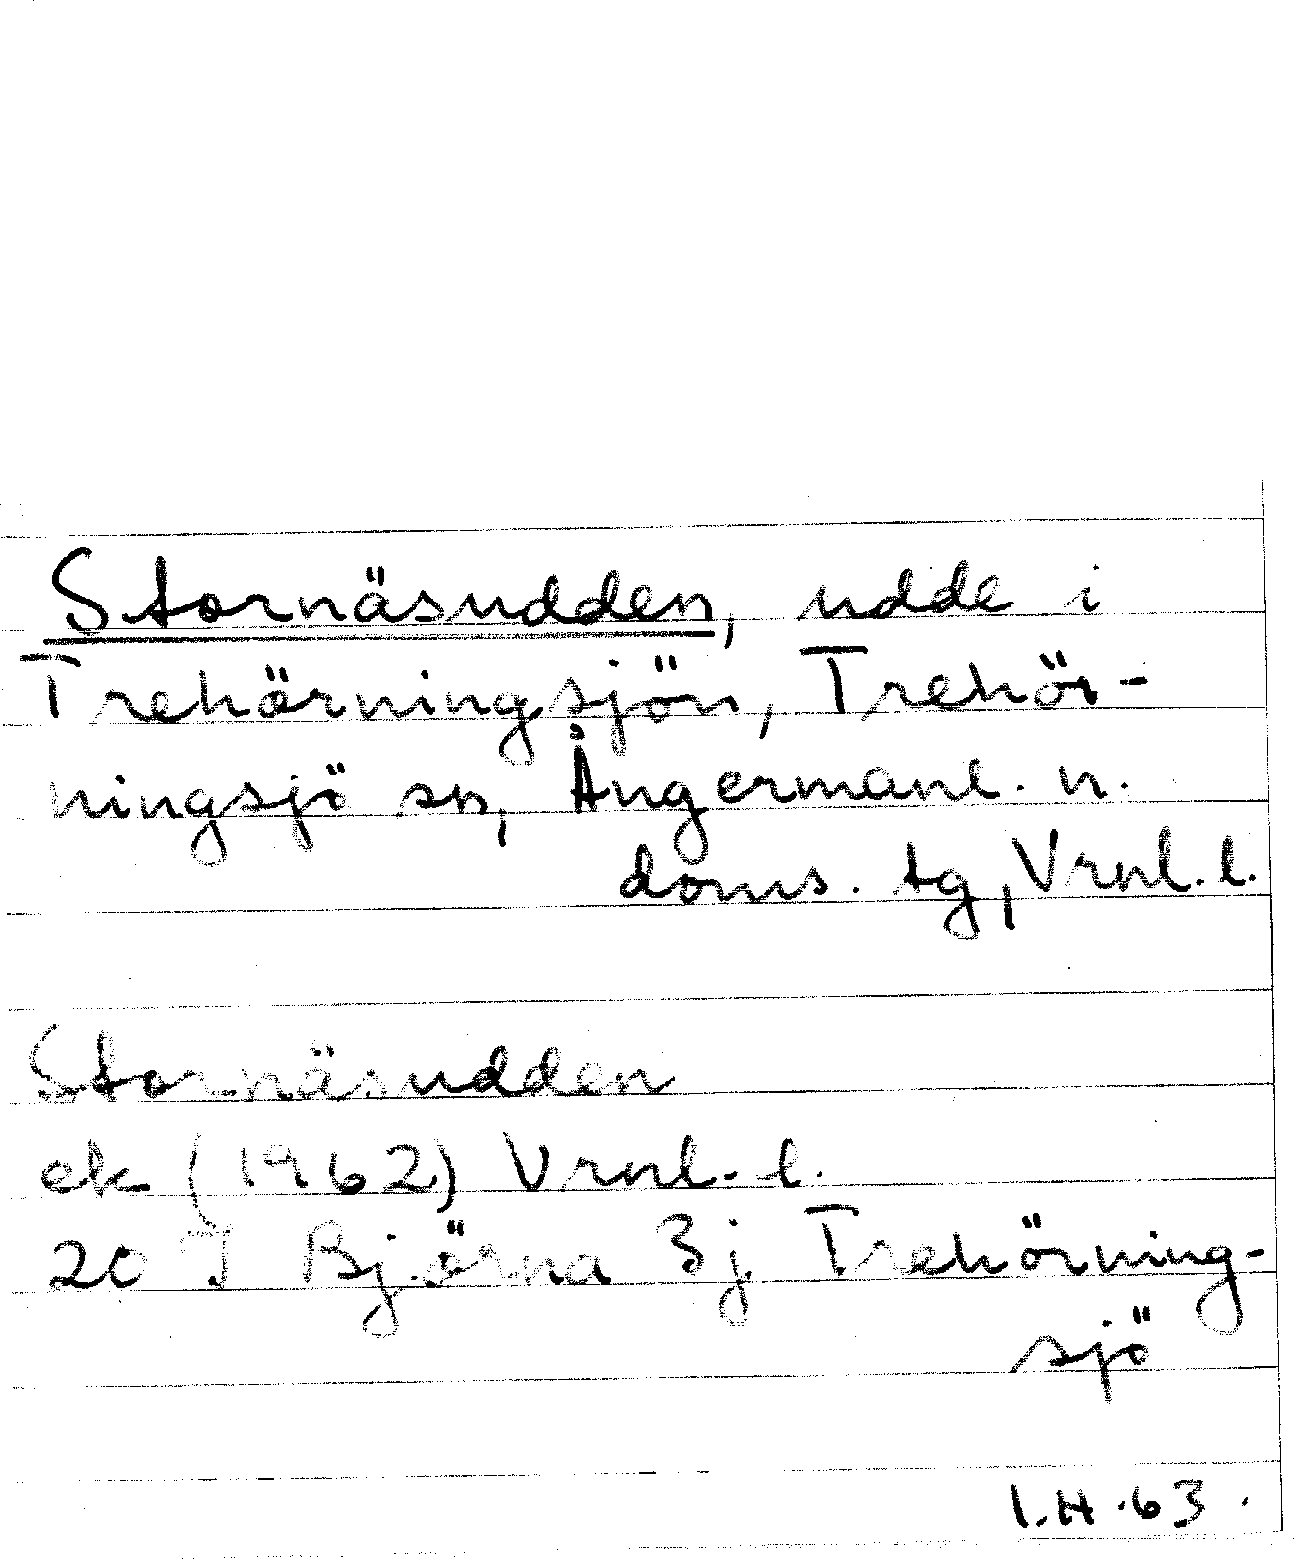 Stornäsudden, udde i
Trehörningsjön, Trehör-
ningsjö sn, Ångermanl. n.
doms. tg, Vrnl. l.
Stornäsudden
ek (1962) Vrnl. l.
20 I Björna 3j Trehörning-
sjö
I.H. 63.